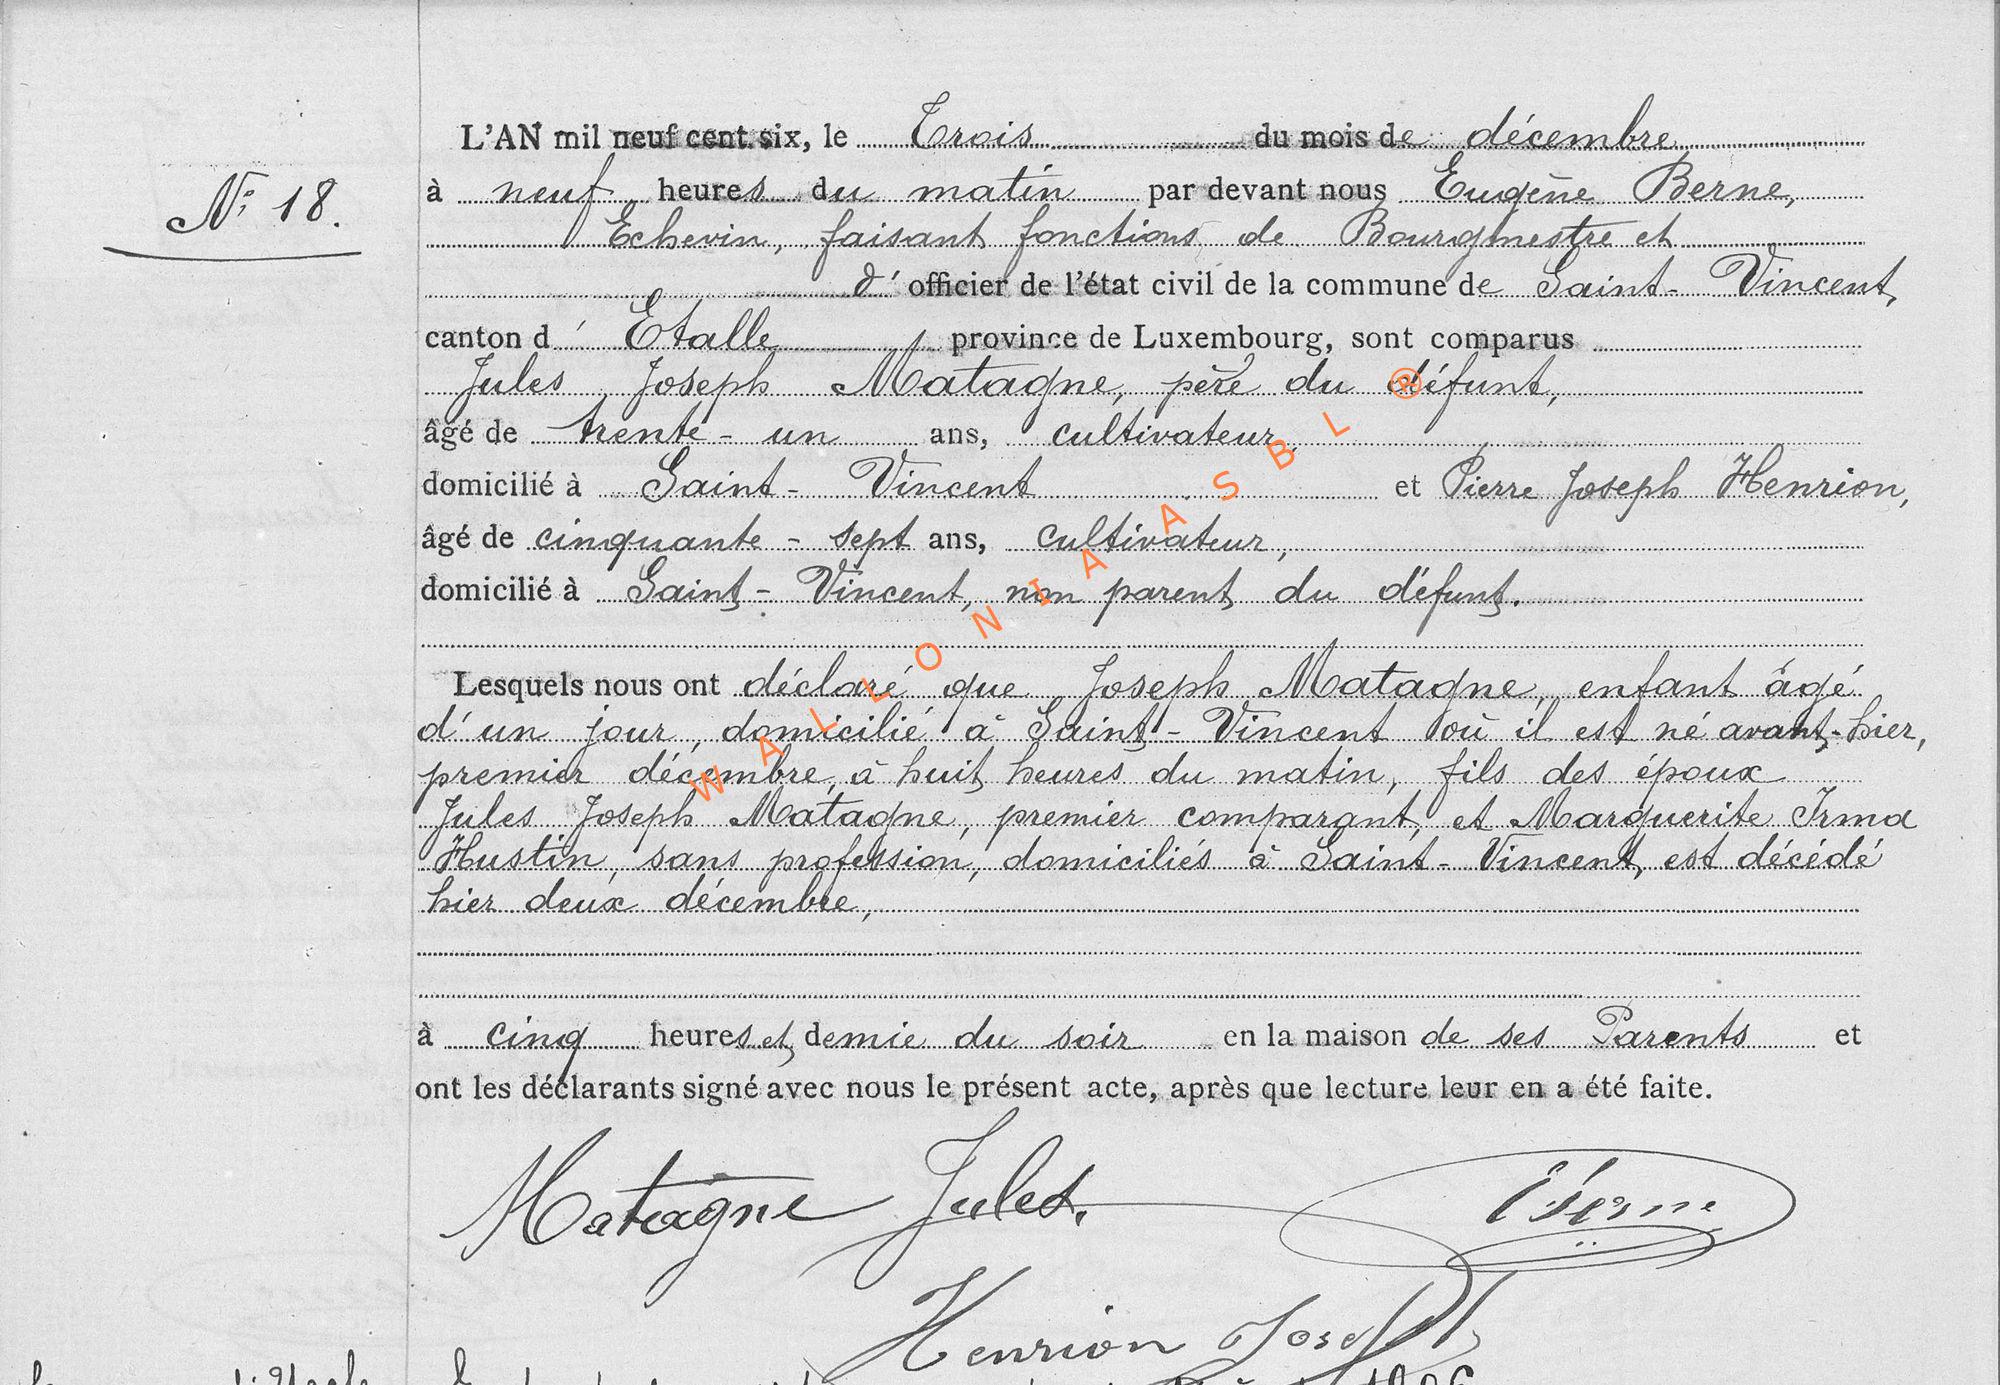 N° 18.
L'AN mil neuf cent six, le Trois du mois de décembre
à neuf heures du matin par devant nous Eugène Berne,
Echevin, faisant fonctions de Bourgmestre et
d'officier de l'état civil de la commune de Saint-Vincent,
canton d'Etalle province de Luxembourg, sont comparus
Jules Joseph Matagne, père du défunt,
âgé de trente-un ans, cultivateur,
domicilié à Saint-Vincent et Pierre Joseph Henrion,
âgé de cinquante-sept ans, cultivateur,
domicilié à Saint-Vincent, non parent du défunt.
Lesquels nous ont déclaré que Joseph Matagne, enfant âgé
d'un jour, domicilié à Saint-Vincent où il est né avant-hier,
premier décembre, à huit heures du matin, fils des époux
Jules Joseph Matagne, premier comparant, et Marguerite Irma
Hustin, sans profession, domiciliés à Saint-Vincent, est décédé
hier deux décembre,
à cinq heures et demie du soir en la maison de ses Parents et
ont les déclarants signé avec nous le présent acte, après que lecture leur en a été faite.
Matagne Jules. EBerne
Henrion Joseph
WALLONIA ASBL ®